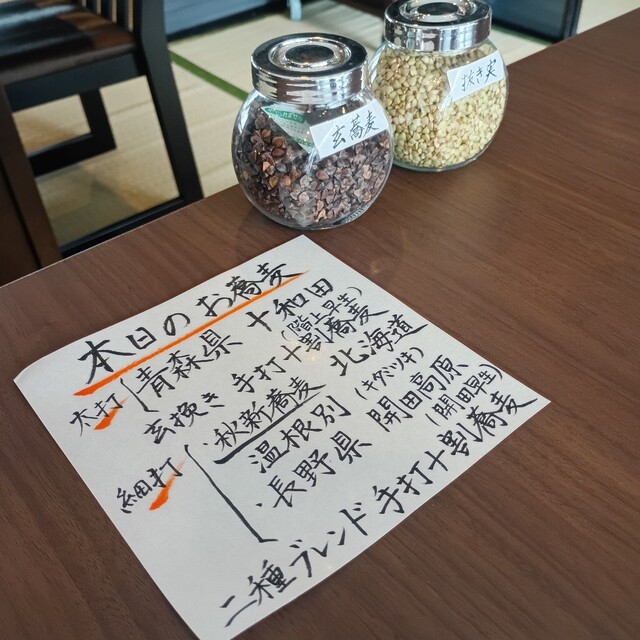 玄蕎麦
挽き実
本日のお蕎麦
太打
青森県 十和田
(階上早生)
玄挽き 手打十割蕎麦
細打
・秋新蕎麦 北海道
温根別 (キタミツキ)
・長野県 開田高原
(開田早生)
二種ブレンド手打十割蕎麦